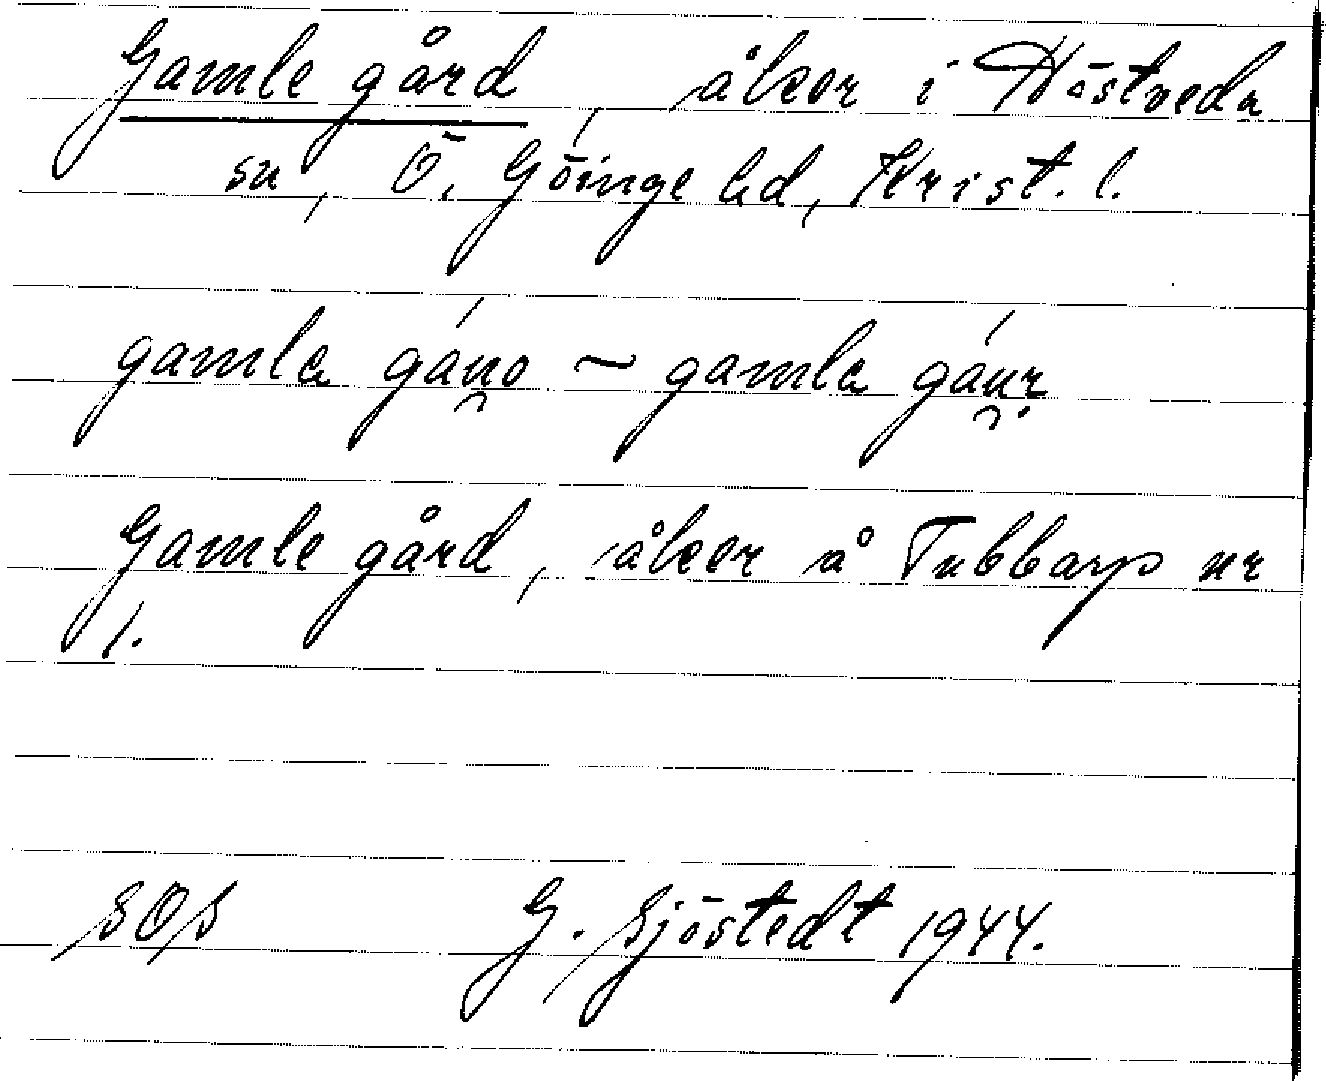 Gamle gård, åker i Höstveda
sn, Ö. Göinge hd, Krist. l.
gamla gáu̯o ~ gamla gáu̯r
Gamle gård, åker å Tubbarp nr
1.
SOS G. Sjöstedt 1944.